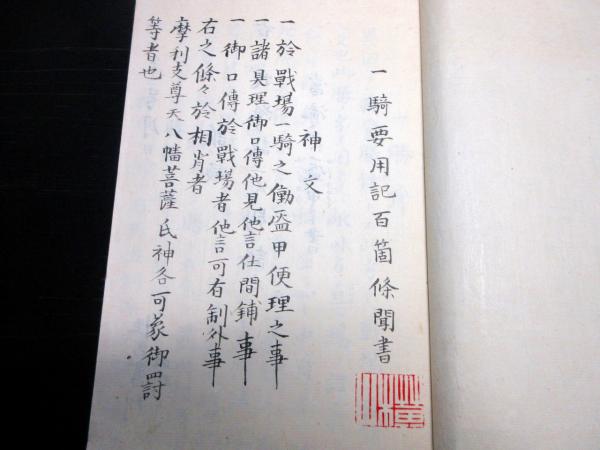 一騎要用記百箇條聞書
神文
一於戰場一騎之働盔甲便理之事
一諸具理御口傳他見他言仕間鋪事
一御口傳於戰場者他言可有制外事
右之條々於相背者
摩利支尊天八幡菩薩氏神各可蒙御罸
等者也